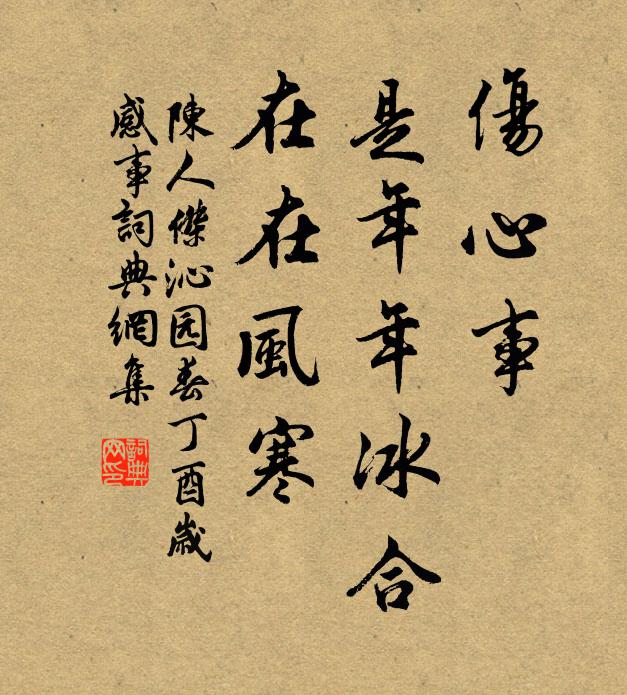 傷心事
是年年冰合
在在風寒
陳人傑沁园春丁酉歲
感事詞典網集
詞典网印